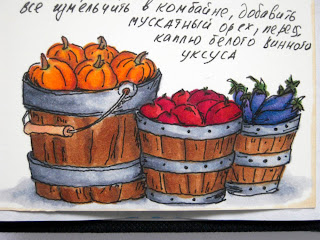 все измельчить в комбайне, добавить
мускатный орех, перец,
каплю белого винного
уксуса